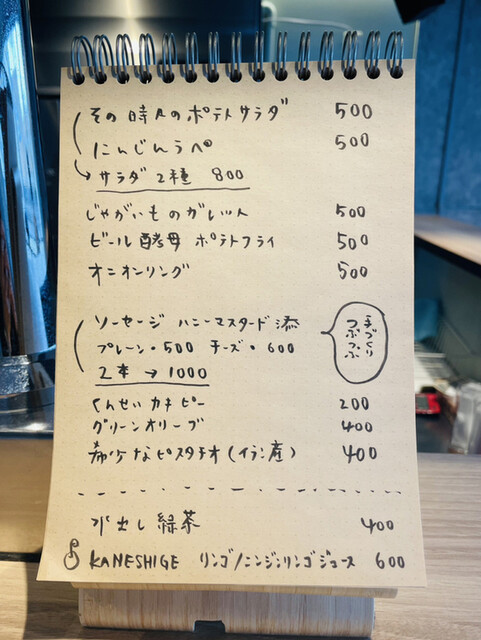 その時々のポテトサラダ 500
にんじんラペ 500
サラダ2種 800
じゃがいものガレット 500
ビール酵母 ポテトフライ 500
オニオンリング 500
ソーセージ ハニーマスタード添
プレーン・500 チーズ・600
2本→1000
手づくり
つぶつぶ
くんせいカキピー 200
グリーンオリーブ 400
希少なピスタチオ(イラン産) 400
水出し緑茶 400
KANESHIGE リンゴ/ニンジンリンゴジュース 600